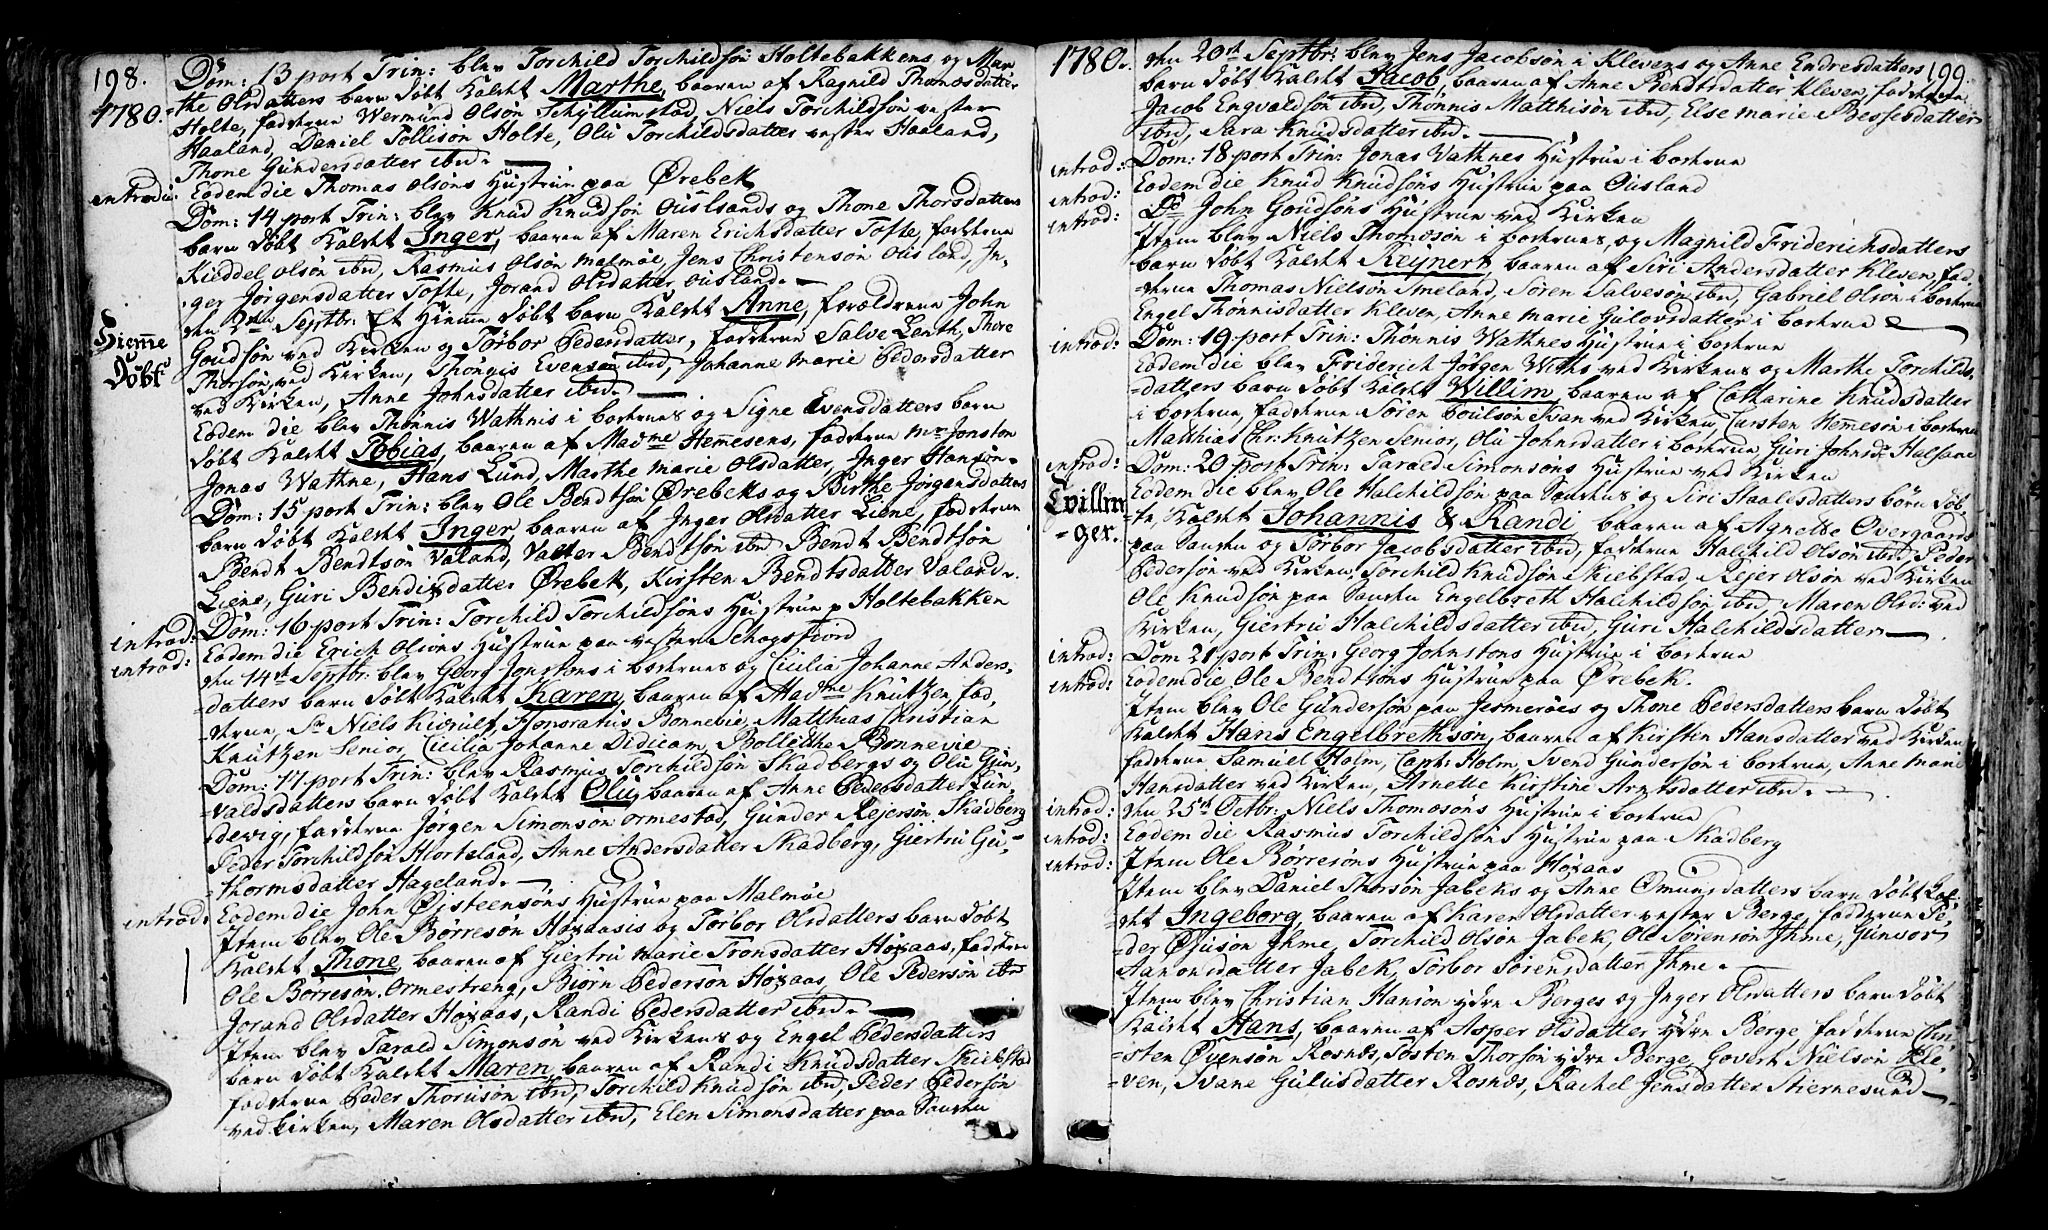 198.
1780.
Dom: 13 post Trin: blev Torchild Torchildsøn Holtebakkens og Mar
the Olsdatters barn døbt kaldet Marthe, baaren af Ragnild Thomasdatter
Holte, fadderne Wermund Olsøn Schÿllumstad, Niels Torchildsøn vester
Haaland, Daniel Tollisøn Holte, Olu Torchildsdatter vester Haaland,
Thone Gundersdatter ibid. —
introdu: Eodem die Thomas Olsøns Hustrue paa Ørebek
Dom: 14 post Trin: blev Knud Knudsøn Ouslands og Thone Thorsdatters
barn døbt kaldet Inger, baaren af Maren Erichsdatter Tofte, fadderne
Kieddel Olsøn ibid, Rasmus Olsøn Malmøe, Jens Christensøn Ousland, In-
ger Jørgensdatter Tofte, Jorand Olsdatter, Ousland. —
Hiemme Døbt
den Septbr: Et Hiemme døbt barn kaldet Anne, forældrene John
Goudsøn ved Kirken og Tørbor Pedersdatter, fadderne Salve Lenth, Thore
Thorsøn ved Kirken, Thøngis Evensøn ibid, Johanne marie Pedersdatter
ved Kirken, Anne Johnsdatter ibid. —
Eodem die blev Thønnis Wathnis i boskerues og Signe Evensdatters barn
døbt kaldet Tobias, baaren af Madme Hemesens, fadderne Mr Jonston
Jonas Wathne, Hans Lund, Marthe marie Olsdatter, Inger Hansøn.
Dom: 15 post Trin: blev Ole Bendtsøn Ørebeks og Birthe Jørgensdatters
barn døbt kaldet Inger, baaren af Inger Olsdatter Liene, fadderne
Bendt Bendtsøn Valand, Valter Bendtsøn ibid Bendt Bendtsøn
Liene, Guri Bendisdatter Ørebek, Kirsten Bendtsdatter Valand.
introd: Dom: 16 post Trin: Torchild Torchildsøns Hustrue p Holtebakken
introd: Eodem die Erich Olsøns Hustrue paa vestere Schogsfiord
den 14de Septbr: blev Georg Jonstons i boskerues og Cicilia Johanne Anders-
datters barn døbt kaldet Karen, baaren af Madme Knutzen, fad,
derne, Sr Niels Kierulf, Honoratus Bonnevie, Matthias Christian
Knutzen Senior, Cicilia Johanne Didicam, Bollethe Bonnevie
Dom: 17 post Trin: blev Rasmus Torchildsøn Skadbergs og Olu Gun,
valdsdatters barn døbt kaldet Olu, baaren af Anne Pedersdatter Lun,
devig, fadderne Jørgen Simonsøn Ormestad, Gunder Rejersøn, Skadberg
Peder Torchildsøn Hiorteland, Anne Andersdatter Skadberg, Giertru Gu-
thormsdatter Hageland. —
introd: Eodem die John Øisteensøns Hustrue paa Malmøe
Item blev Ole Børresøn Høxaasis og Tørbor Olsdatters barn døbt
kaldet Thone, baaren af Giertru marie Tronsdatter Høxaas, fadderne
Ole Børresøn Ormestreng, Biørn Pedersøn Høxaas, Ole Pedersøn ibid
Jorand Olsdatter Høxaas, Randi Pedersdatter ibid. —
Item blev Tarald Simonsøn ved Kirkens og Engel Pedersdatters
barn døbt kaldet Maren, baaren af Randi Knudsdatter Skiebstad
fadderne Peder Thorusøn ibid, Torchild Knudsøn ibid, Peder Pedersøn
ved kirken, Maren Olsdatter ibid, Elen Simonsdatter paa Sanden
1780.
199.
den 20de Septbr: blev Jens Jacobsøn i Klevens og Anne Endresdatters
barn døbt kaldet Jacob, baaren af Anne Bendtsdatter Kleven, fadderne
Jacob Engvaldsøn ibid, Thønnis Matthisøn ibid, Else marie Bessesdatter
ibid, Sara Knudsdatter ibid. —
introd: Dom: 18 post Trin: Jonas Wathnes Hustrue i boskerue
introd: Eodem die Knud Knudsøns Hustrue paa Ousland
introd: Do John Goudsøns Hustrue ved Kirken
Item blev Niels Thomesøn i boskerues, og Magnild Friderichsdatters
barn døbt kaldet Reÿnert, baaren af Siri Andersdatter Kleven, fad-
derne Thomas Nielsøn Imeland, Søren Salvesøn ibid, Gabriel Olsøn i boskerue
Engel Thønnisdatter Kleven, Anne marie Gulovsdatter i boskerue —
introd: Dom: 19 post Trin: Thønnis Wathnes Hustrue i boskerue
Eodem die blev Friderich Jørgen Withs ved Kirkens og Marthe Torchilds-
datters barn døbt kaldet Willim, baaren af Catharine Knudsdatter
i boskerue, fadderne Søren Poulsøn Svan ved Kirken, Carsten Hemesøn i boskerue
Matthias Chr: Knutzen Senior, Olu Johnsdatter i boskerue, Guri Johnsd: Halsane
introd: Dom: 20 post Trin: Tarald Simonsøns Hustrue ved Kirken
Tvillin-ger.
Eodem die blev Ole Halchildsøn paa Sandens og Siri Haalesdatters børn døb-
te, kaldet Johannis & Randi baaren af Agnette Overgaards
paa Sanden og Tørbor Jacobsdatter ibid, fadderne Halchild Olsøn ibid, Peder
Pedersøn ved Kirken, Torchild Knudsøn Skiebstad, Rejer Olsøn ved Kirken
Ole Knudsøn paa Sanden Engelbreth Halchildsøn ibid, Maren Olsd: ved
Kirken, Giertru Halchildsdatter ibid, Guri Halchildsdatter —
introd: Dom 21 post Trin: Georg Johnstons Hustrue i boskerue
introd: Eodem die Ole Bendtsøns Hustrue paa Ørebek.
Item blev Ole Gundersøn paa Jesmerøes og Thone Pedersdatters barn døbt
kaldet Hans Engelbrethsøn, baaren af Kirsten Hansdatter ved Kirken
fadderne Samuel Holm, Capt: Holm, Svend Gundersøn i boskerue, Anne marie
Hansdatter ved Kirken, Arnette Kirstine Arntsdatter ibid. —
introd: den 25de Octbr: Niels Thomesøns Hustrue i boskerue
introd: Eodem die Rasmus Torchildsøns Hustrue paa Skadberg
introd: Item Ole Børresøns Hustrue paa Høxaas
Item blev Daniel Thorsøn Jabeks og Anne Omunsdatters barn døbt kal-
det Ingeborg, baaren af Karen Olsdatter vester Berge, fadderne Pe-
der Øiusøn Ihme, Torchild Olsøn Jabek, Ole Sørensøn Ihme, Gunvor
Aanonsdatter Jabek, Tørbor Sørensdatter Ihme. —
Item blev Christian Hansøn ydre Berges og Inger Olsdatters barn døbt
kaldet Hans, baaren af Asper Olsdatter ydre Berge, fadderne Chri-
sten Ovensøn Rosnes, Tosten Thorsøn ydre Berge, Govert Nielsøn Kle-
ven, Svane Gulusdatter Rosnes, Rachel Jensdatter Stiernesund —